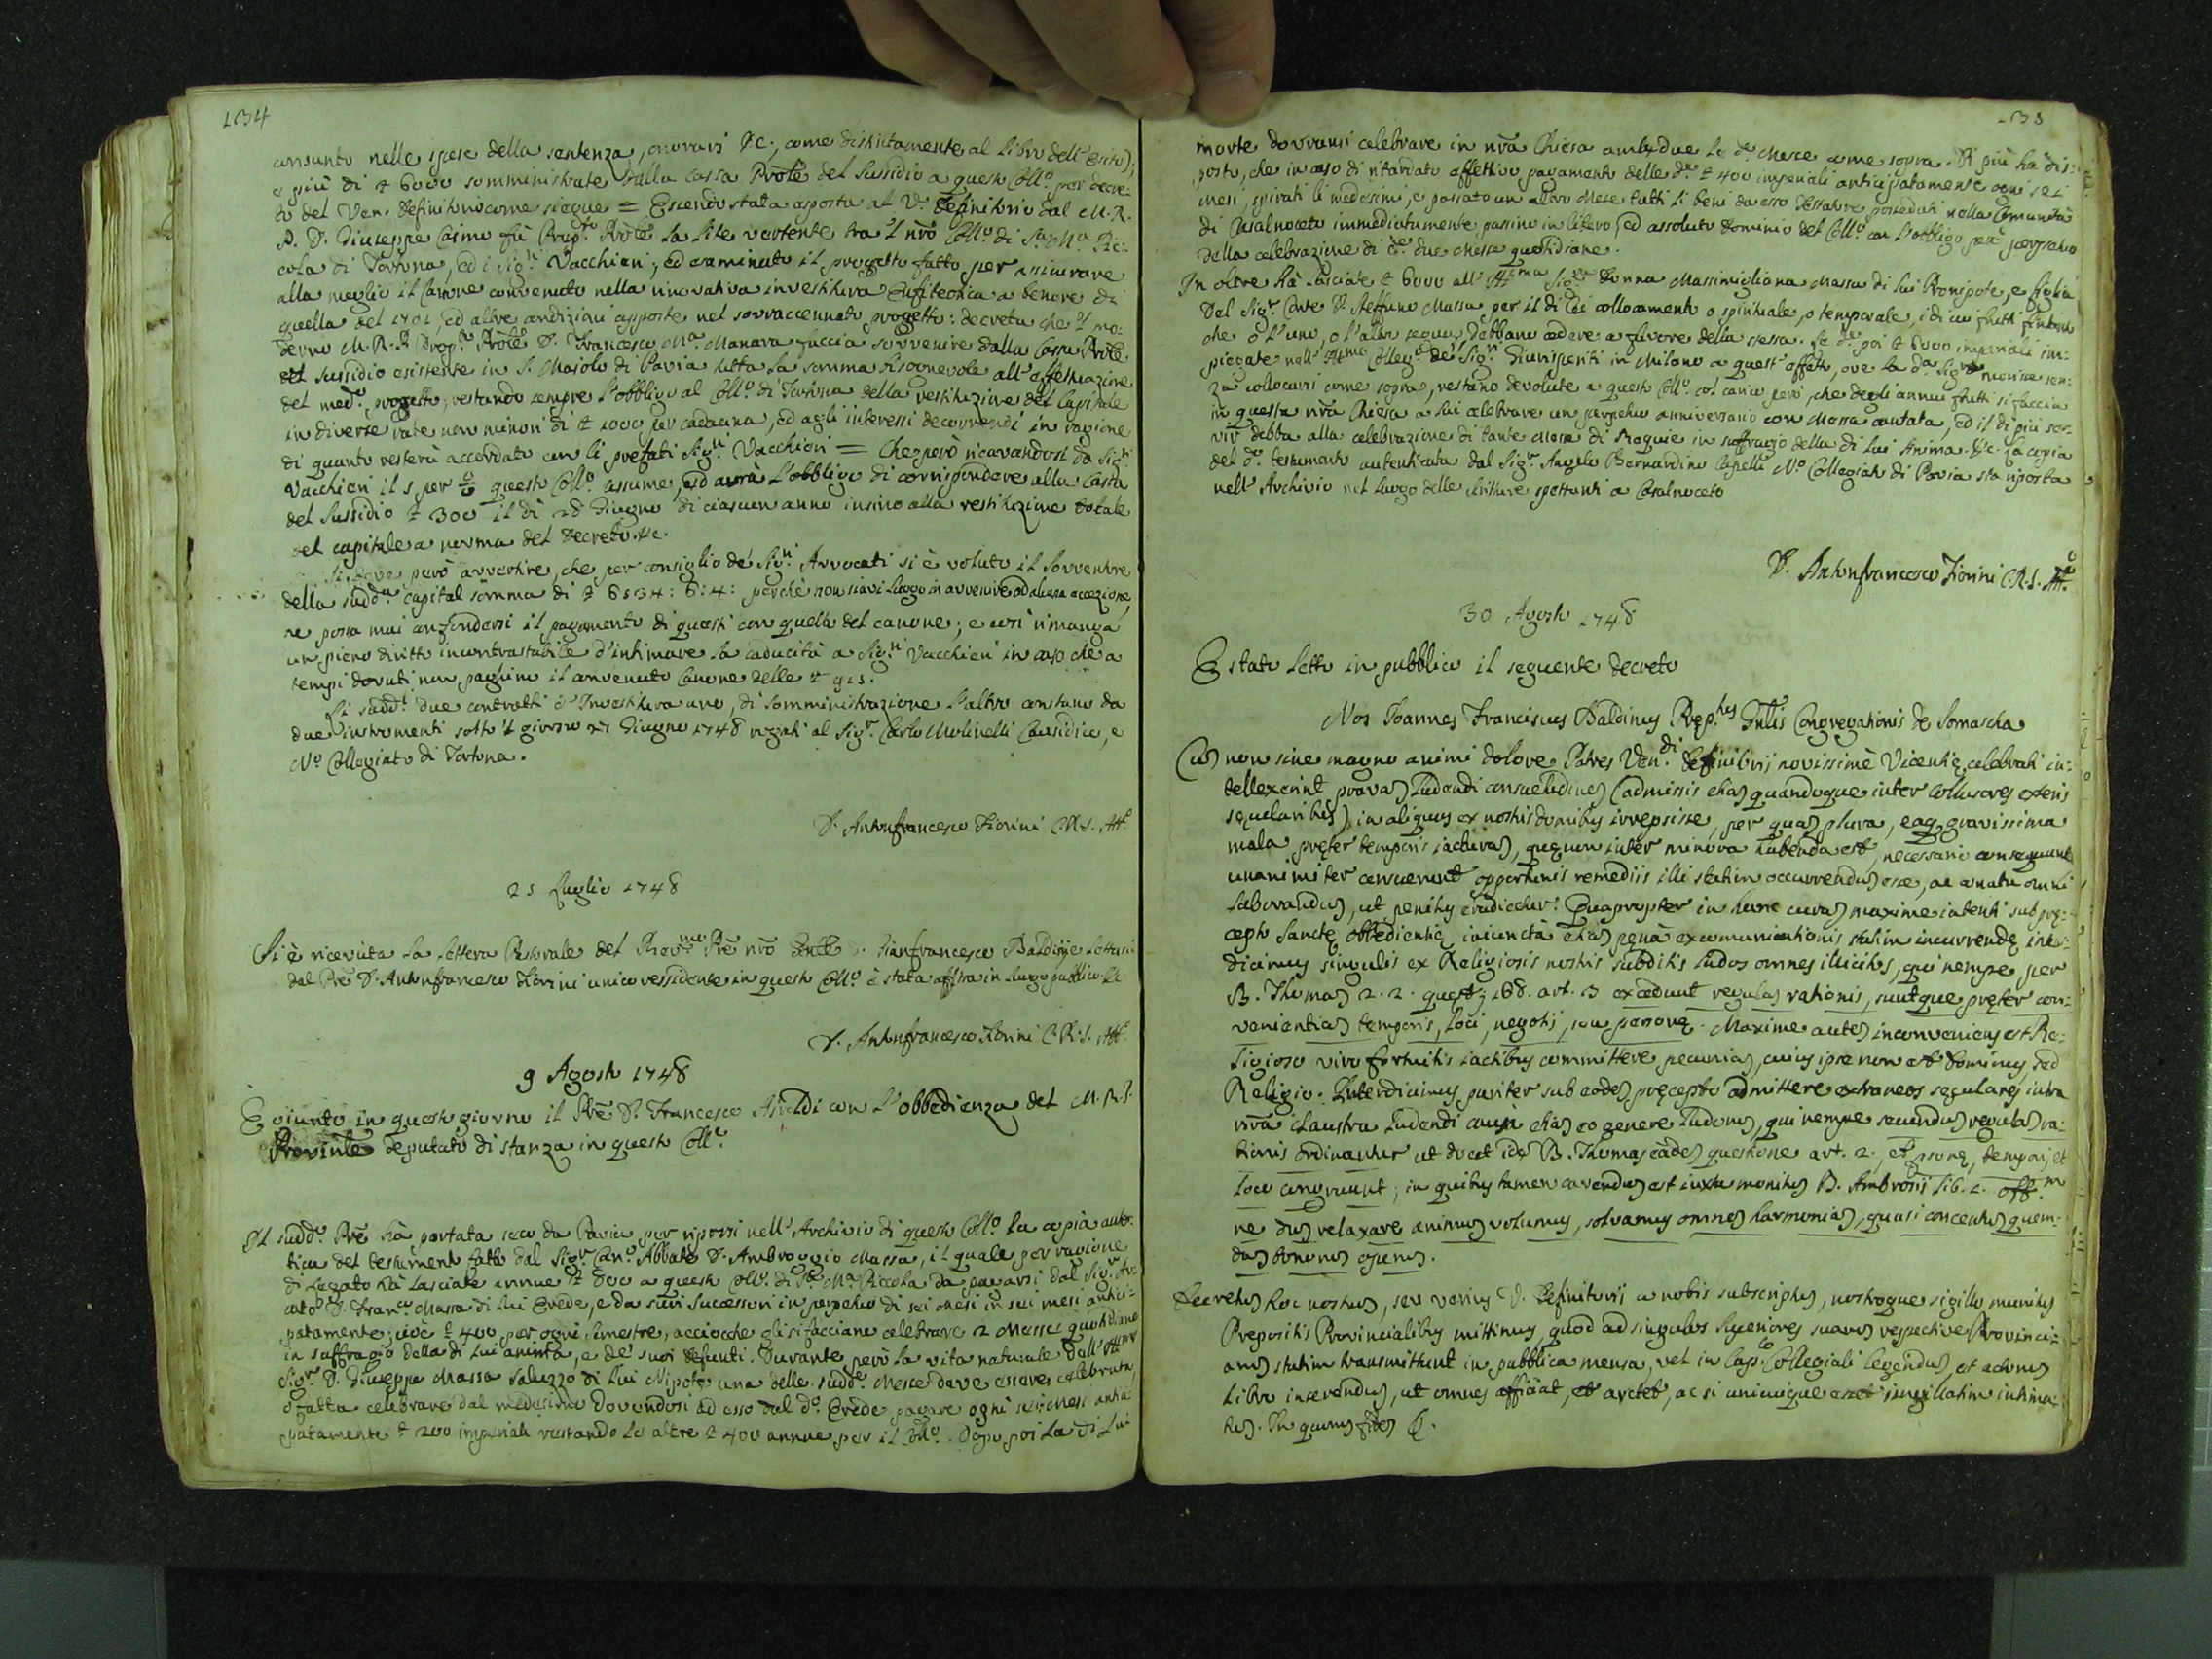 134
consunto nelle spese della sentenza, onorarj &c., come distintamente al Libro dell' Esito),
e più di £ 6000 somministrate dalla Cassa Prõle del Sussidio a questo Coll.º per decre-
to del Ven. Definitorio come siegue = Essendo stata esposta al V. Definitorio dal M. R.
P. D. Giuseppe Caimo fù Prep.to Prõle la lite vertente tra 'l nrõ Coll.º di S.ta M.a Pic-
cola di Tortona, ed i Sig.ri Vacchieri, ed esaminato il progetto fatto per assicurare
alla meglio il Canone convenuto nella rinovativa investitura Enfiteotica a tenore di
quella del 1701, ed altre condizioni apposte nel sovraccennato progetto: decreta che 'l mo-
derno M. R. P. Prop.to Prõle D. Francesco M.a Manara faccia sovvenire dalla Cassa Prõle
del Sussidio esistente in S. Majolo di Pavia tutta la somma bisognevole all' effettuazione
del med.º progetto, restando sempre l'obbligo al Coll.º di Tortona della restituzione del Capitale
in diverse rate non minori di £ 1000 per cadauna, ed agli interessi decorrendi in ragione
di quanto resterà accordato con li prefati Sig.ri Vacchieri = Che però ricavandosi da Sig.ri
Vacchieri il 5 per % questo Coll.º assume, ed avrà l'obbligo di corrispondere alla Cassa
del Sussidio £ 300 il dì 28 Giugno di ciascun anno insino alla restituzione totale
del capitale a norma del Decreto &c.
Si deve però avvertire, che per consiglio de' Sig.ri Avvocati si è voluto il sovventore
della sudd.a capital somma di £ 6534: 6: 4: perchè non siavi luogo in avvenire ad alcuna eccezione,
ne possa mai confondersi il pagamento di questi con quello del canone; e così rimanga
un pieno diritto incontrastabile d'intimare la caducità a Sig.ri Vacchieri in caso che a
tempi dovuti non paghino il convenuto Canone delle £ 915.
Li sudd.i due contratti d'Investitura uno, di somministrazione l'altro constano da
due instromenti sotto 'l giorno 27 Giugno 1748 rogati al Sig.r Carlo Molinelli Causidico, e
N.º Collegiato di Tortona.
D. Antonfrancesco Fiorini C.R.S. Att.º
25 Luglio 1748
Si è ricevuta la Lettera Pastorale del Rev.mo Prẽ nrõ Gnle D. Gianfrancesco Baldini, e lettasi
dal Prẽ D. Antonfrancesco Fiorini unico residente in questo Coll.º è stata affissa in luogo pubblico &c
D. Antonfrancesco Fiorini C.R.S. Att.º
9 Agosto 1748
E giunto in questo giorno il Prẽ D. Francesco Asvaldi con l'obbedienza del M. R. P.
Provinle deputato di stanza in questo Coll.º
Il sudd.º Prẽ hà portata seco da Pavia per riporsi nell' Archivio di questo Coll.º la copia auten-
tica del testamento fatto dal Sig.r Can.º Abbate D. Ambroggio Massa, il quale per ragione
di Legato hà lasciate annue £ 800 a questo Coll.º di S.ta M.a Piccola da pagarsi dal Sig.r Av-
cato D. Fran.co Massa di lui Erede, e da suoi Successori in perpetuo di sei mesi in sei mesi antici-
patamente; cioè £ 400 per ogni semestre, acciocche gli si facciano celebrare 2 Messe quotidiane
in suffragio della di lui anima, e de' suoi defunti. Durante però la vita naturale dell' Ill.mo
Sig.r D. Giuseppe Massa Saluzzo di lui Nipote una delle sudd.e Messe deve essere celebrata,
o fatta celebrare dal medesimo dovendosi ad esso dal d.º Erede pagare ogni sei Mesi antici-
patamente £ 200 imperiali restando le altre £ 400 annue per il Coll.º. Dopo poi la di lui
135
morte dovransi celebrare in nrã Chiesa ambedue le d.e Messe come sopra. Di più hà dis-
posto, che in caso di ritardato effettivo pagamento delle d.e £ 400 imperiali anticipatamente ogni sei
mesi, spirati li medesimi, e passato un altro Mese tutti li beni da esso Testatore posseduti nella Comunità
di Casalnoceto immediatamente passino in libero, ed assoluto dominio del Coll.º con l'obbligo però perpetuo
della celebrazione di d.e due Messe quotidiane.
In oltre hà lasciate £ 6000 all' Ill.ma Sig.ra Donna Massimigliana Massa di lui Pronipote, e figlia
del Sig.r Conte D. Steffano Massa per il di Lei collocamento o spirituale, o temporale, i di cui frutti fintanto
che o l'uno, o l'altro segua, debbano cedere a favore della stessa. Le d.e poi £ 6000 imperiali im-
piegate nell' Ill.mo Colleg.º de' Sig.ri Giurisperiti in Milano a quest' effetto, ove la d.a Sig.ra morisse sen-
za collocarsi come sopra, restano devolute a questo Coll.º col carico però, che degli annui frutti si faccia
in questa nrã Chiesa a lui celebrare un perpetuo anniversario con Messa cantata, ed il di più ser-
vir debba alla celebrazione di tante Messe di Requie in suffragio della di lui Anima. &c. La copia
del d.º testamento autenticata dal Sig.r Angelo Bernardino Capelli N.º Collegiato di Pavia sta riposta
nell' Archivio nel luogo delle scritture spettanti a Casalnoceto
D. Antonfrancesco Fiorini C.R.S. Att.º
30 Agosto 1748
E stato letto in pubblico il seguente decreto
Nos Joannes Franciscus Baldinus Prep.tus Gnlis Congregationis de Somascha
Cum non sine magno animi dolore Patres Ven.di Definitorij novissimè Vicentię celebrati in-
tellexerint pravam ludendi consuetudinem (admissis etiam quandoque inter collusores exteris
sęcularibus) in aliquas ex nostris domibus irrepsisse, per quam plura, eaq. gravissima
mala pręter temporis jacturam, quę non inter minora habenda est, necessario consequunt.
unanimiter censuerunt opportunis remediis illi statim occurrendum esse, ac conatu omni
laborandum, ut penitus eradicetur. Quapropter in hanc curam maxime intenti sub prę-
cepto Sanctę obbedientię injuncta etiam pęnâ excomunicationis statim incurrendę inter-
dicimus singulis ex Religiosis nostris subditis ludos omnes illicitos, qui nempe per
B. Thomam 2. 2. quęst. 168. art. 3 excedunt regulam rationis, suntque pręter con-
venientiam temporis, loci, negotij, seu personę. Maxime autem inconveniens est Re-
ligioso viro fortuitis jactibus committere pecuniam, cujus ipse non est Dominus, sed
Religio. Interdicimus pariter sub eodem pręcepto admittere extraneos sęculares intra
nrã claustra ludendi causâ etiam eo genere ludorum, qui nempe secundum regulam ra-
tionis ordinantur ut docet idem B. Thomas eâdem questione art. 2., et psonę, tempori, et
loco congruunt; in quibus tamen cavendum est juxta monitum B. Ambrosij lib. 1. off.m
ne dum relaxare animum volumus, solvamus omnem harmoniam, quasi concentum quem-
dam bonorum operum.
Decretum hoc nostrum, seu verius V. Definitorij a nobis subscriptum, nostroque sigillo munitum
Prepositis Provincialibus mittimus, quod ad singulos superiores suarum respective Provinci-
arum statim transmittant in pubblica mensa, vel in Cap.lo Collegiali legendum, et actorum
libro inserendum, ut omnes afficiat, et arctet, ac si unicuique esset singillatim intima-
tum. In quorum fidem &.